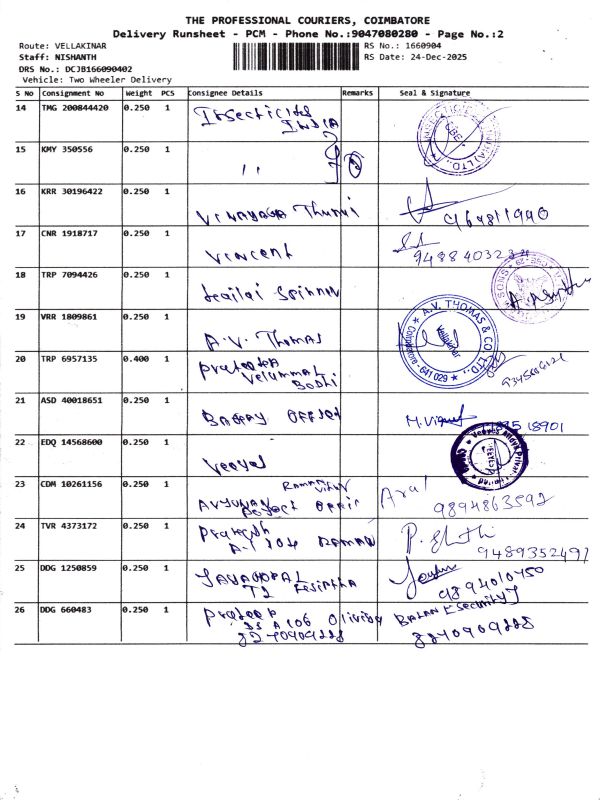 THE PROFESSIONAL COURIERS, COIMBATORE
Delivery Runsheet - PCM - Phone No.:9047080280 - Page No.:2
Route: VELLAKINAR
RS No.: 1660904
Staff: NISHANTH
RS Date: 24-Dec-2025
DRS No.: DCJB166090402
Vehicle: Two Wheeler Delivery
S No Consignment No Weight PCS Consignee Details Remarks Seal & Signature
14 TMG 200844420 0.250 1 Insecticides
INDIA
15 KMY 350556 0.250 1 ,,
16 KRR 30196422 0.250 1 VINAYAGA
17 CNR 1918717 0.250 1 Vincent
18 TRP 7094426 0.250 1
19 VRR 1809861 0.250 1 A.V. Thomas
A.V. THOMAS & CO. LTD.,
Vellakinar
Coimbatore - 641 029
20 TRP 6957135 0.400 1
Velummal
Bodhi
21 ASD 40018651 0.250 1
22 EDQ 14568600 0.250 1 Veeyes
23 CDM 10261156 0.250 1
9894863592
24 TVR 4373172 0.250 1 Prakash
A-1 204 RAMAN
9489352497
25 DDG 1250859 0.250 1 JAYAGOPAL
T2
9894010450
26 DDG 660483 0.250 1 Prateep
A 106
8270909228
Security
8270909228